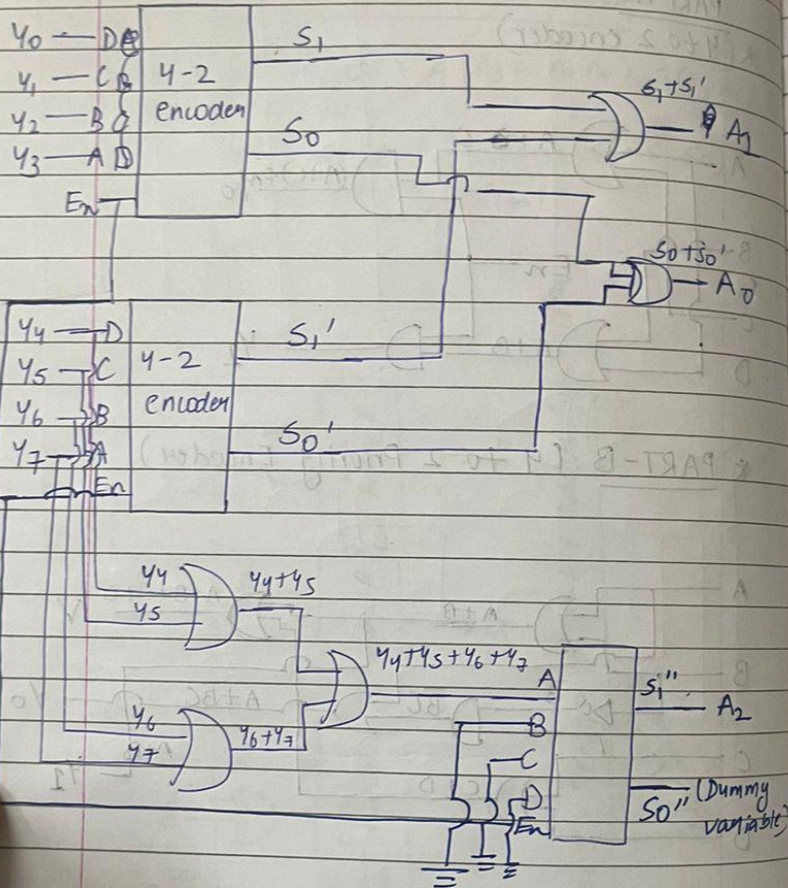 Y0 D
Y1 C
Y2 B
Y3 A D
En
4-2
encoder
S1
S0
S1+S1'
A1
S0+S0'
A0
Y4 D
Y5 C
Y6 B
Y7 A
En
4-2
encoder
S1'
S0'
Y4
Y5
Y4+Y5
Y6
Y7
Y6+Y7
Y4+Y5+Y6+Y7
A
B
C
D
En
S1''
A2
S0'' (Dummy
variable)